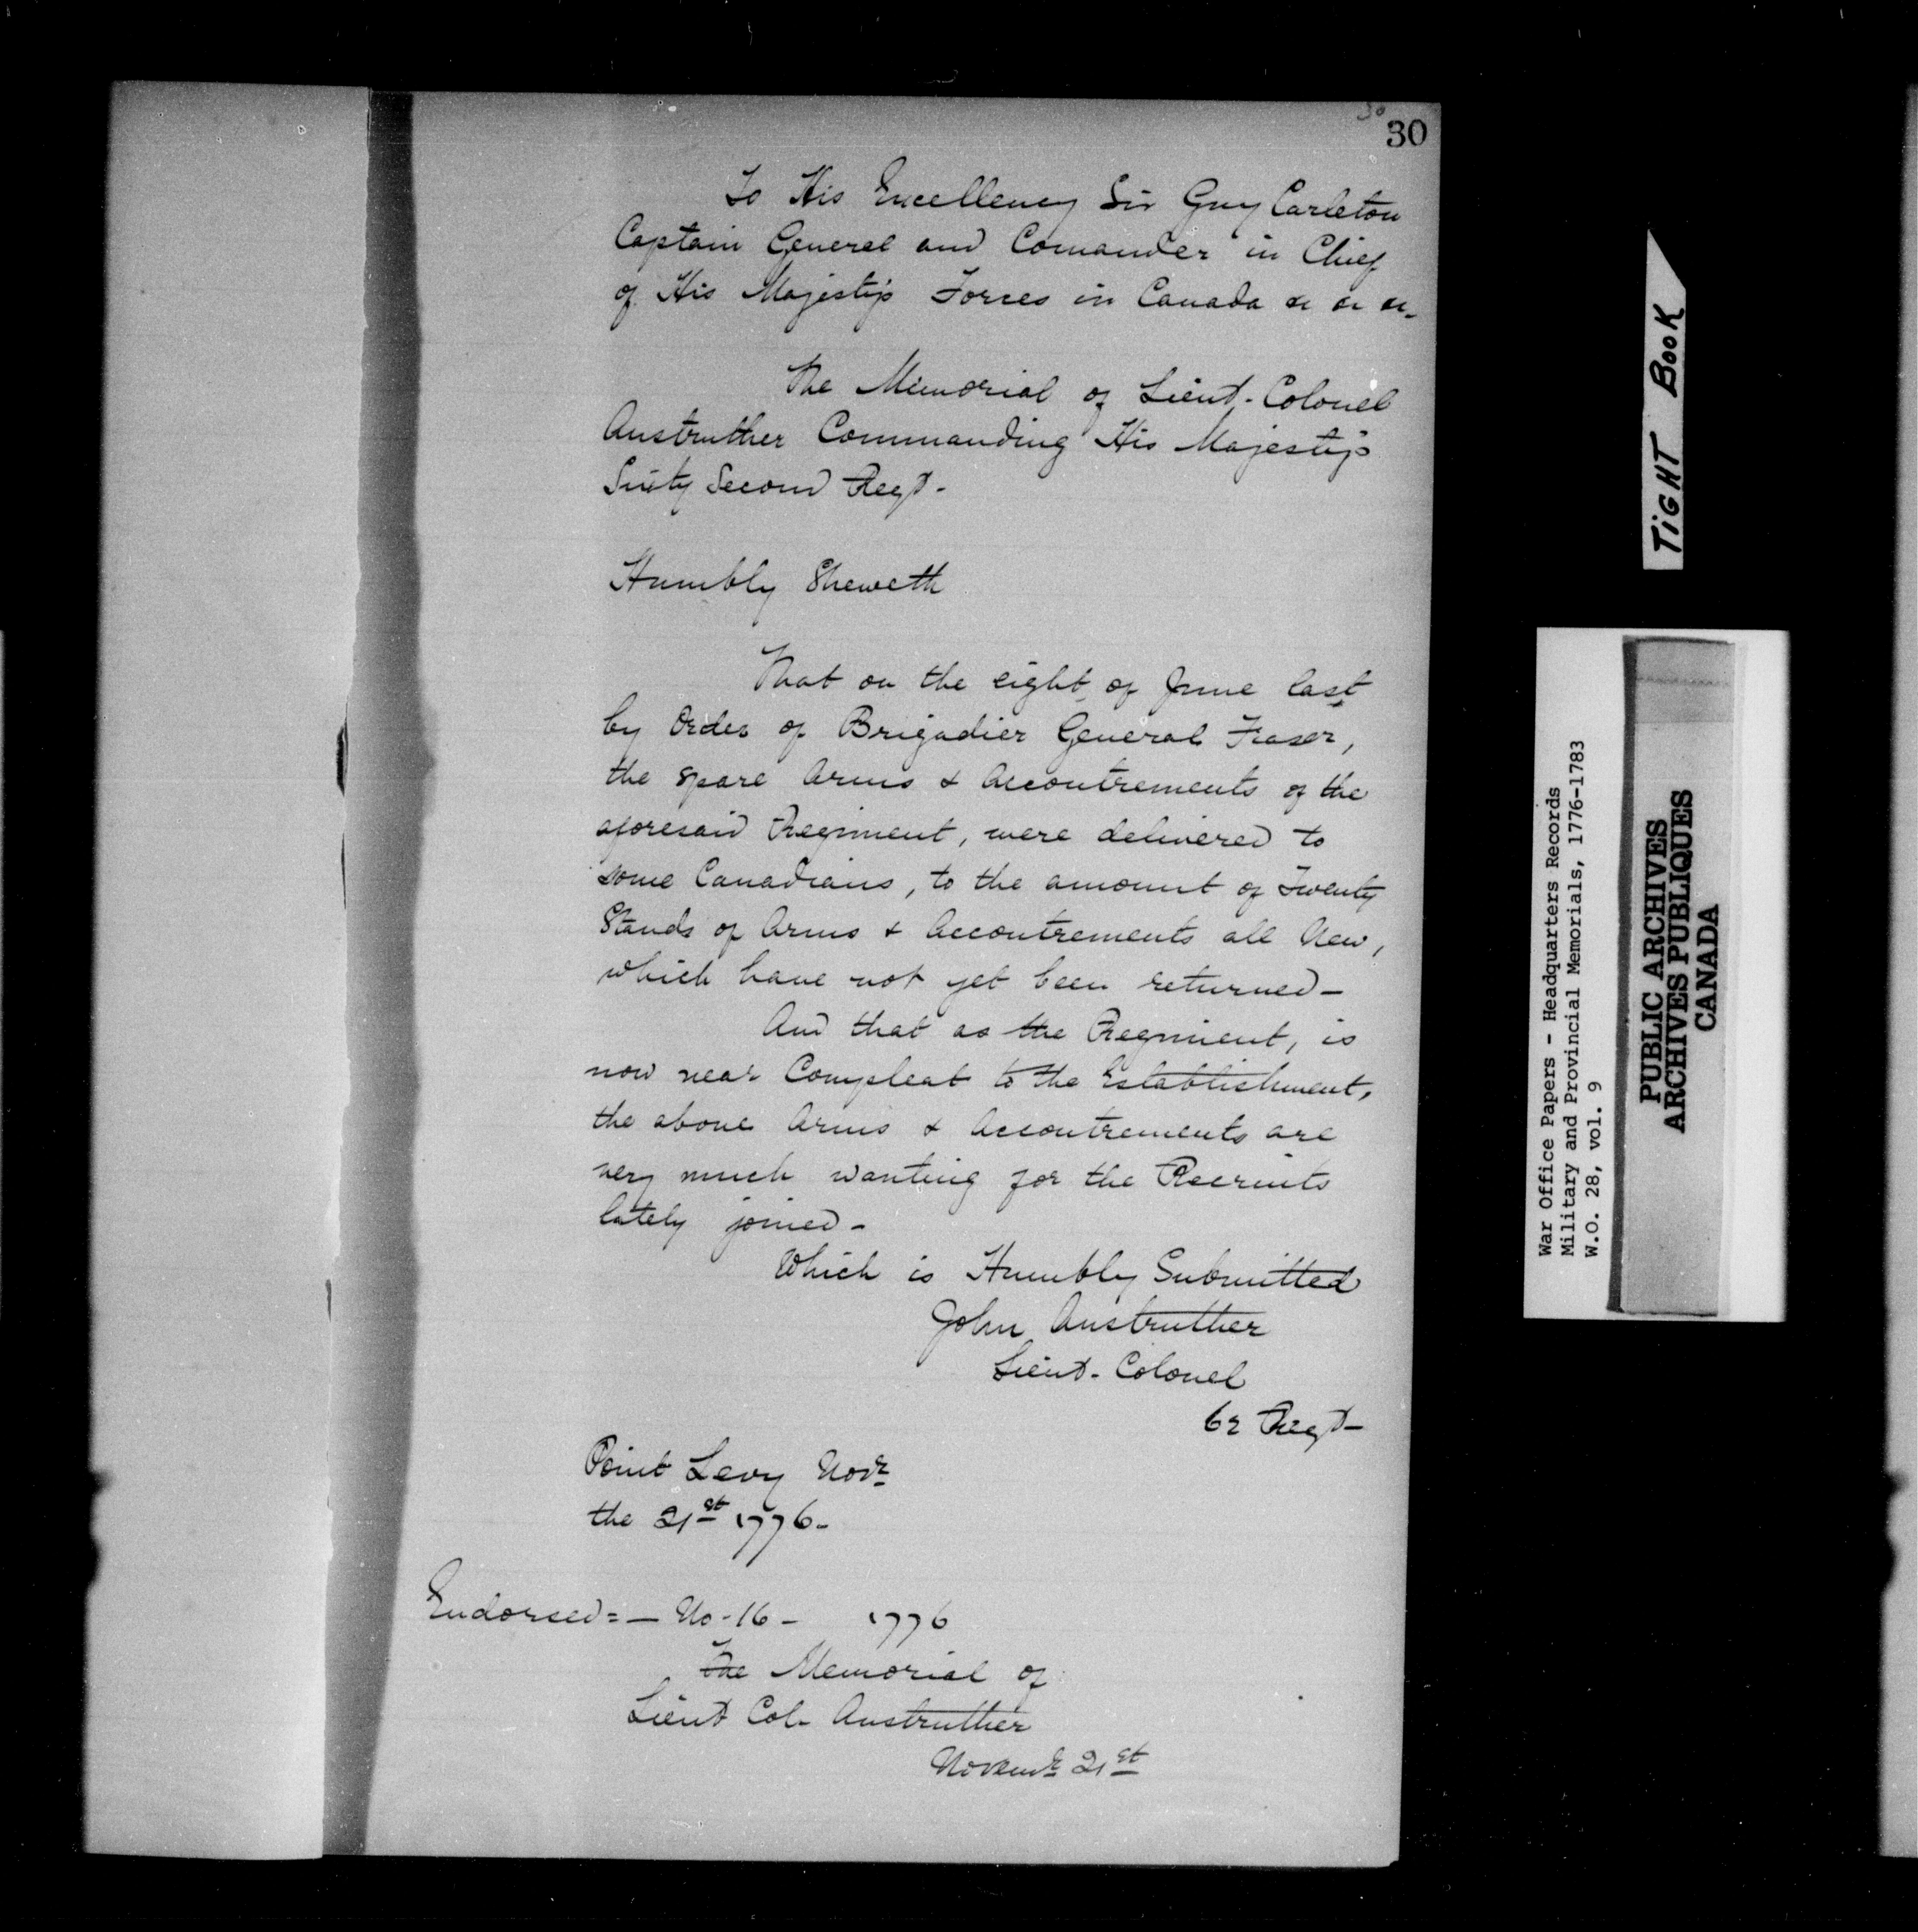 30
30
To His Excellency Sir Guy Carleton
Captain General and Comander in Chief
of His Majesty's Forces in Canada &c &c &c-
The Memorial of Lieut.- Colonel
Anstruther Commanding His Majesty's
Sixty Second Regt-
Humbly Sheweth
That on the eight of June last
by Order of Brigadier General Fraser,
the spare Arms & Accoutrements of the
aforesaid Regiment, were delivered to
some Canadians, to the amount of Twenty
Stands of Arms & Accoutrements all New,
which have not yet been returned-
And that as the Regiment, is
now near Compleat to the Establishment,
the above Arms & Accoutrements are
very much wanting for the Recruits
lately joined-
Which is Humbly Submitted
John Anstruther
Lieut- Colonel
62 Regt-
Point Levy Novr
the 21st 1776-
Endorsed=- No-16- 1776
The Memorial of
Lieut Col- Anstruther
Novemr 21st
TIGHT BOOK
War Office Papers - Headquarters Records
Military and Provincial Memorials, 1776-1783
W.O. 28, vol. 9
PUBLIC ARCHIVES
ARCHIVES PUBLIQUES
CANADA